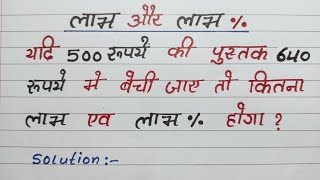 लाभ और लाभ %
यदि 500 रूपये की पुस्तक 640
रूपये मे बेची जाए तो कितना
लाभ एव लाभ % होगा ?
Solution:-